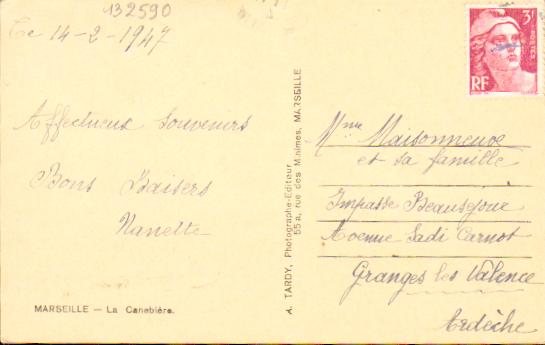 132590
Le 14-2-1947
Affectueux Souvenirs
Bons Baisers
Nanette
MARSEILLE — La Canebière.
A. TARDY, Photographe-Editeur
55a, rue des Minimes, MARSEILLE
3F
POSTES
RF
Mme Maisonneuve
et sa famille
Impasse Beausejour
Avenue Sadi Carnot
Granges les Valence
Ardèche